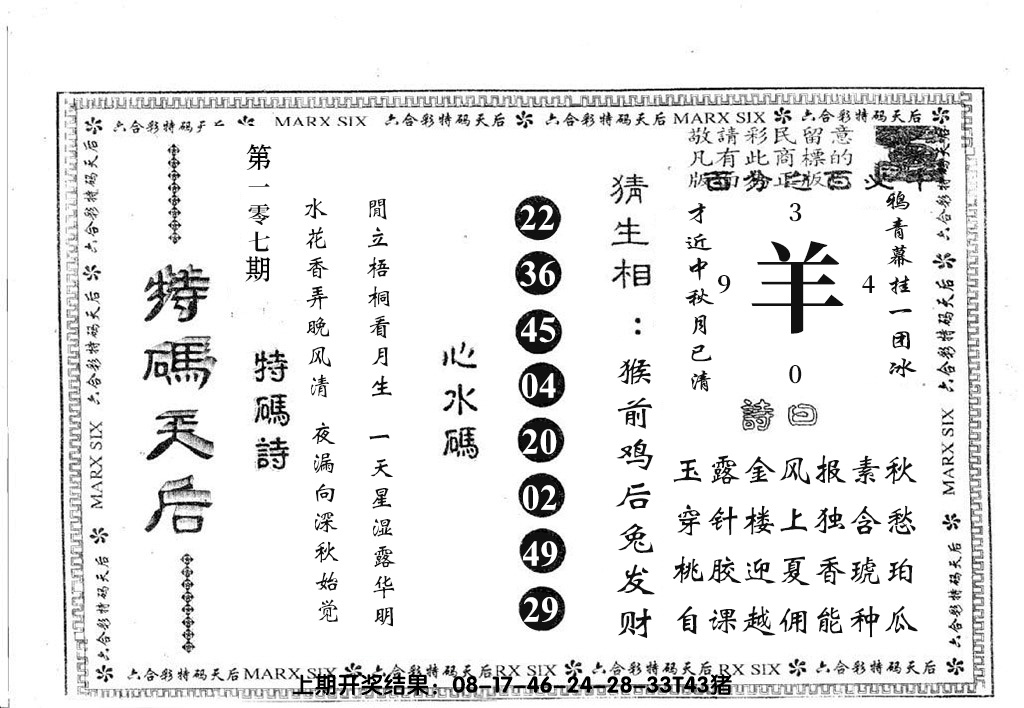 六合彩特码天后 MARX SIX 六合彩特码天后 六合彩特码天后 MARX SIX 六合彩特码天后
敬請彩民留意
凡有此商標的
鴉青幕挂一团冰
才近中秋月已清
3
9 羊 4
0
詩曰
玉露金风报素秋
穿针楼上独含愁
桃胶迎夏香琥珀
自课越佣能种瓜
猜生相：猴前鸡后兔发财
22
36
45
04
20
02
49
29
心水碼
閒立梧桐看月生 一天星湿露华明
水花香弄晚风清 夜漏向深秋始觉
特碼詩
第一零七期
特碼天后
六合彩特码天后 六合彩特码天后 MARX SIX 六合彩特码天后
六合彩特码天后 六合彩特码天后 MARX SIX 六合彩特码天后
六合彩特码天后 MARX SIX 六合彩特码天后 RX SIX 六合彩特码天后 RX SIX 六合彩特码天后
上期开奖结果：08-17-46-24-28-33T43猪